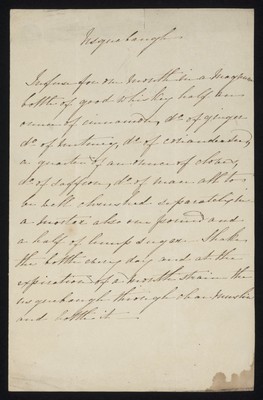 Usquebaugh.
Infuse for one month in a magnum
bottle of good whiskey half an
ounce of cinnamon, do. of ginger
do. of nutmeg, do. of coriander seed,
a quarter of an ounce of cloves,
do. of saffron, do. of mace all to
be well bruised separately in
a mortar also one pound and
a half of lump sugar. Shake
the bottle every day and at the
expiration of a month strain the
usquebaugh through clear muslin
and bottle it.